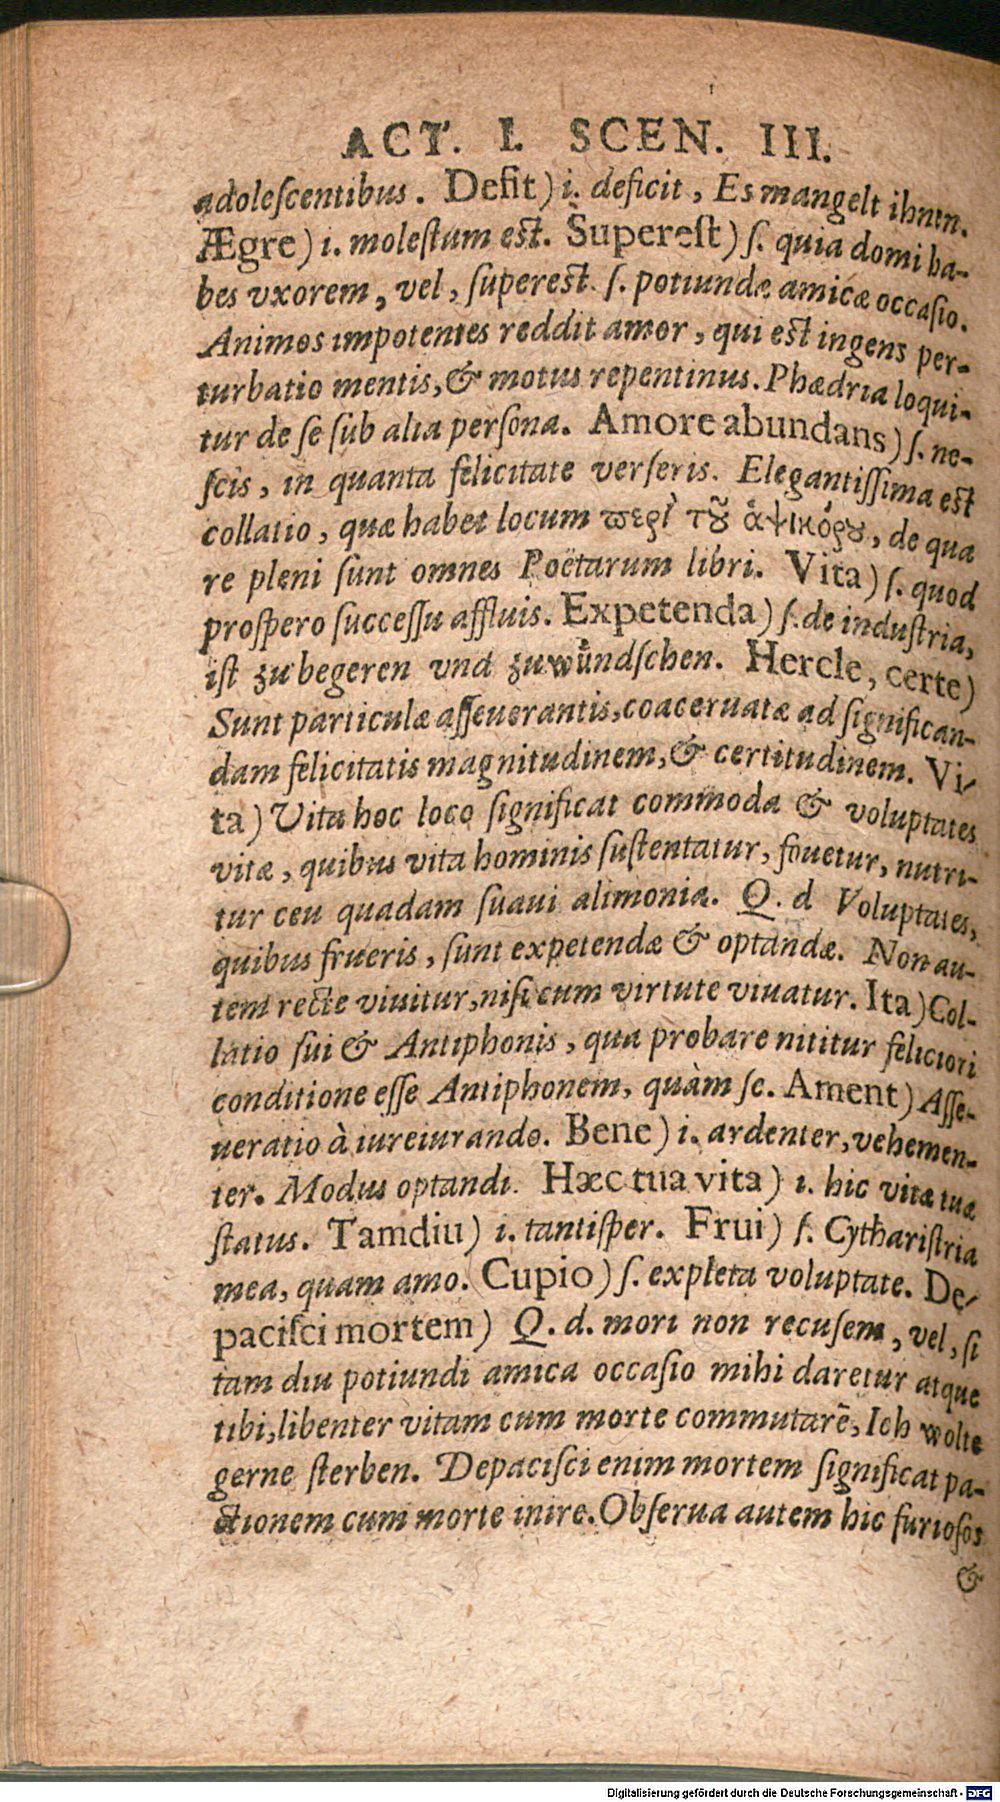 ACT. I. SCEN. III.
adoleſcentibus. Defit) i. deficit, Es mangelt ihnen.
Ægre) i. moleſtum eſt. Supereſt) ſ. quia domi ha-
bes vxorem, vel, ſupereſt ſ. potiundæ amicæ occaſio.
Animos impotentes reddit amor, qui eſt ingens per-
turbatio mentis, & motus repentinus. Phædria loqui-
tur de ſe ſub alia perſona. Amore abundans) ſ. ne-
ſcis, in quanta felicitate verſeris. Elegantiſſima eſt
collatio, quæ habet locum ϖερὶ τȣ͂ ἁψικόρȣ, de qua
re pleni ſunt omnes Poëtarum libri. Vita) ſ. quod
proſpero ſucceſſu affluis. Expetenda) ſ. de induſtria,
iſt zu begeren vnd zuwündſchen. Hercle, certe)
Sunt particulæ aſſeuerantis, coaceruatæ ad ſignifican-
dam felicitatis magnitudinem, & certitudinem. Vi-
ta) Vita hoc loco ſignificat commoda & voluptates
vitæ, quibus vita hominis ſuſtentatur, fouetur, nutri-
tur ceu quadam ſuaui alimonia. Q. d Voluptates,
quibus frueris, ſunt expetendæ & optandæ. Non au-
tem recte viuitur, niſi cum virtute viuatur. Ita) Col-
latio ſui & Antiphonis, qua probare nititur feliciori
conditione eſſe Antiphonem, quàm ſe. Ament) Aſſe-
ueratio à iureiurando. Bene) i. ardenter, vehemen-
ter. Modus optandi. Hæc tua vita) i. hic vitæ tuæ
ſtatus. Tamdiu) i. tantiſper. Frui) ſ. Cythariſtria
mea, quam amo. Cupio) ſ. expleta voluptate. De-
paciſci mortem) Q. d. mori non recuſem, vel, ſi
tam diu potiundi amica occaſio mihi daretur atque
tibi, libenter vitam cum morte commutarē, Ich wolte
gerne ſterben. Depaciſci enim mortem ſignificat pa-
ctionem cum morte inire. Obſerua autem hic furioſos
&
Digitalisierung gefördert durch die Deutsche Forschungsgemeinschaft - DFG